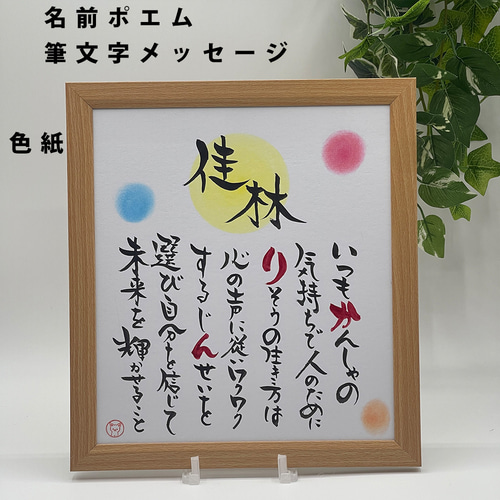 名前ポエム
筆文字メッセージ
色紙
佳林
いつもかんしゃの
気持ちで人のために
りそうの生き方は
心の声に従いワクワク
するじんせいを
選び自分を信じて
未来を輝かせること